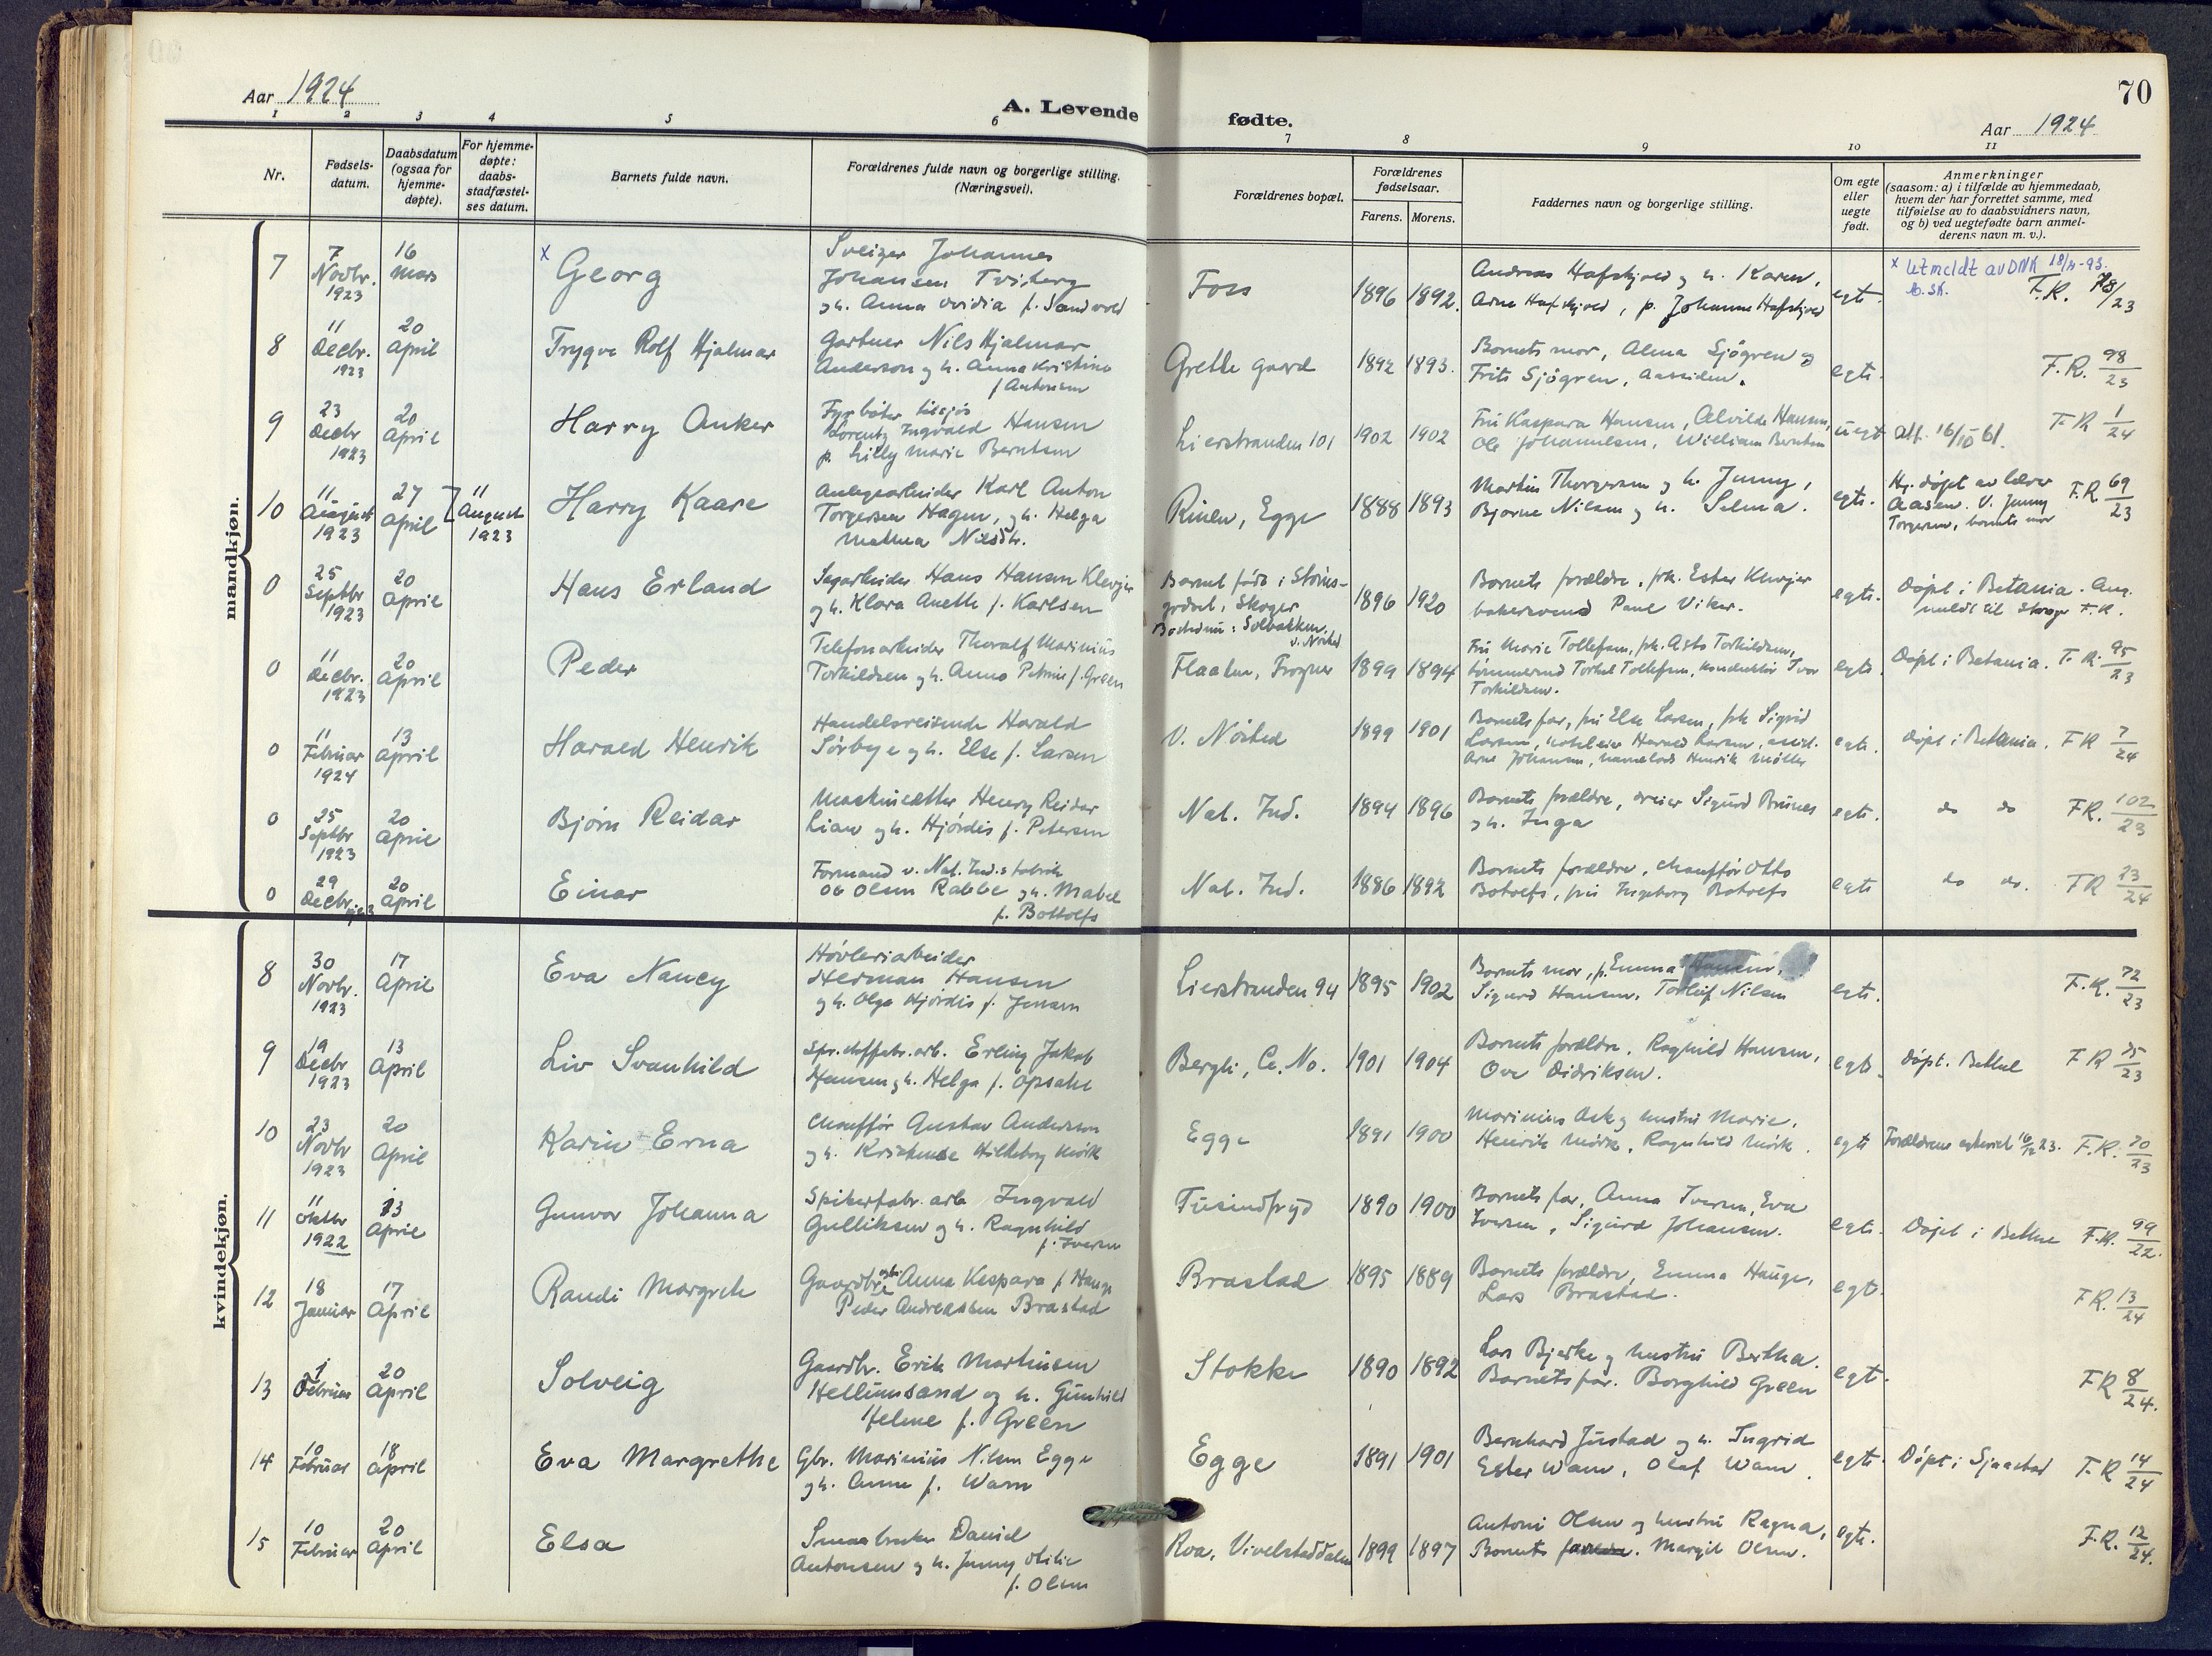 Aar 1924
A. Levende fødte.
70
Aar 1924
1 2 3 4 5 6 7 8 9 10 11
Nr.
Fødsels-datum.
Daabsdatum (ogsaa for hjemme-døpte).
For hjemme-døpte: daabs-stadfæstel-ses datum.
Barnets fulde navn.
Forældrenes fulde navn og borgerlige stilling. (Næringsvei).
Forældrenes bopæl.
Forældrenes fødselsaar.
Farens. Morens.
Faddernes navn og borgerlige stilling.
Om egte eller uegte født.
Anmerkninger
(saasom: a) i tilfælde av hjemmedaab, hvem der har forrettet samme, med tilføielse av to daabsvidners navn, og b) ved uegtefødte barn anmel-derens navn m. v.).
mandkjøn.
7
7 Novbr. 1923
16 Mars
x Georg
Sveizer Johannes
Johansen Tviberg
og h. Anna Ovidia f. Sandvold
Foss
1896 1892.
Andreas Hafskjold og h. Karen,
Arne Hafskjold, p. Johanne Hafskjold
egt.
x Utmeldt av DNK
F.R. /23
8
11 Decbr. 1923
20 April
Trygve Rolf Hjalmar
Gartner Nils Hjalmar
Anderson og h. Anna Kristine
f Antonsen
Grette gaard
1892 1893.
Barnets mor, Alma Sjögren og
Frits Sjögren, Aassiden.
egte.
F.R. 98/23
9
23 Decbr 1923
20 April
Harry Anker
Fyrbøter tilsjøs
Lorentz Ingvald Hansen
p. Lilly Marie Berntsen
Lierstranden 101
1902 1902
Fru Kaspara Hansen, Alvilde Hansen,
Ole Johannesen, William Berntsen
uegt
att. 16/10 61.
F R 1/24
10
11 August 1923
27 April
11 August 1923
Harry Kaare
Anlegsarbeider Karl Anton
Torgersen Hagen, og h. Helga
Mathea Nilsdtr.
Rinen, Egge
1888 1893
Martin Thorgersen og h. Jenny,
Bjarne Nilsen og h. Selma.
egte.
Hj. døpt av lærer
Aasen. V. Jenny
Torgersen, barnets mor
F.R 69/23
0
25 Septbr 1923
20 April
Hans Erland
Sagarbeider Hans Hansen Klevjer
og h. Klara Anette f. Karlsen
Barnet født i
Skoger
1896 1920
Barnets forældre, frk. Ester Klevjer
bakersvend Paul Viker.
egte.
Døpt i Betania. Anm.
meldt til Skoger F.R.
0
11 Decbr. 1923
20 April
Peder
Telefonarbeider Thoralf Marinius
Torkildsen og h. Anna Petrine f. Green
Flaaten, Frogner
1899 1894
Fru Marie Tollefsen, frk. Asta Torkildsen,
tømmermand Torkel Tollefsen, konduktør Ivar
Torkildsen.
egte.
Døpt i Betania.
F. R. 95/23
0
11 Februar 1924
13 April
Harald Henrik
Handelsreisende Harald
Sørbye og h. Else f. Larsen
V. Nøsted
1899 1901
Barnets far, fru Else Larsen, frk Sigrid
Larsen, hoteleier Harald Larsen,
Arne Johansen, Henrik Møller
egte.
Døpt i Betania.
F R 7/24
0
25 Septbr 1923
20 April
Bjørn Reidar
Maskinsætter Henry Reidar
Lian og h. Hjørdis f. Petersen
Nat. Ind.
1894 1896
Barnets forældre, dreier Sigurd Brunes
og h. Inga
egte.
do do
F R. 102/23
0
29 Decbr. 1923
20 April
Einar
Formand v. Nat. Ind.s fabrik
Ole Olsen Rabbe og h. Mabel
f. Bottolfs
Nat. Ind.
1886 1892
Barnets forældre, chauffør Otto
Botolfs, fru Ingeborg Botolfs
egte
do do.
F R 23/24
kvindekjøn.
8
30 Novbr. 1923
17 April
Eva Nancy
Høvleriarbeider
Herman Hansen
og h. Olga Hjørdis f. Jensen
Lierstranden 94
1895 1902
Barnets mor, p. Emma Hansen,
Sigurd Hansen, Torleif Nilsen
egte.
F.R. 72/23
9
19 Decbr 1923
13 April
Liv Svanhild
Spr.stoffabr. arb. Erling Jakob
Hansen og h. Helga f. Opsahl
Bergli, Ce. No.
1901 1904
Barnets forældre, Ragnhild Hansen,
Ove Didriksen.
egte.
Døpt. Betel
F R 75/23
10
23 Novbr 1923
20 April
Karin Erna
Chauffør Gustav Andersen
og h. Kristense Hilleborg Mørk
Egge
1891 1900
Marinius Ask og hustru Marie,
Henrik Mørk, Ragnhild Mørk.
egte
Forældrene egteviet 16/12 23.
F.R. 70/23
11
11 Oktbr 1922
13 April
Gunvor Johanna
Spikerfabr. arb Ingvald
Gulliksen og h. Ragnhild
f. Iversen
Tusindfryd
1890 1900
Barnets far, Anna Iversen, Eva
Iversen, Sigurd Johansen.
egte.
Døpt i Betel
F.R. 99/22.
12
18 Januar
17 April
Randi Margrete
Gaardbr. Anna Kaspara f Hauge
Peder Andreassen Brastad
Brastad
1895 1889
Barnets forældre, Emma Hauge,
Lars Brastad.
egte.
F R. 13/24
13
1 Februar
20 April
Solveig
Gaardbr. Erik Martinsen
Hellumsand og h. Gunhild
Helene f. Green
Stokke
1890 1892
Lars Bjerke og hustru Bertha.
Barnets far. Borghild Green
egt.
F R 8/24.
14
10 Februar
18 April
Eva Margrethe
Gbr. Marinius Nilsen Egge
og h. Anne f. Warn
Egge
1891 1901
Bernhard Justad og h. Ingrid
Ester Warn, Olaf Warn.
egte.
Døpt i Sjaastad
F R 14/24
15
10 Februar
20 April
Elsa
Smaabruker Daniel
Antonsen og h. Jenny Otilie
f. Olsen
Roa, Vivelstaddalen
1899 1897
Antoni Olsen og hustru Ragna,
Barnets forældre. Margit Olsen.
egte.
F.R. 12/24.